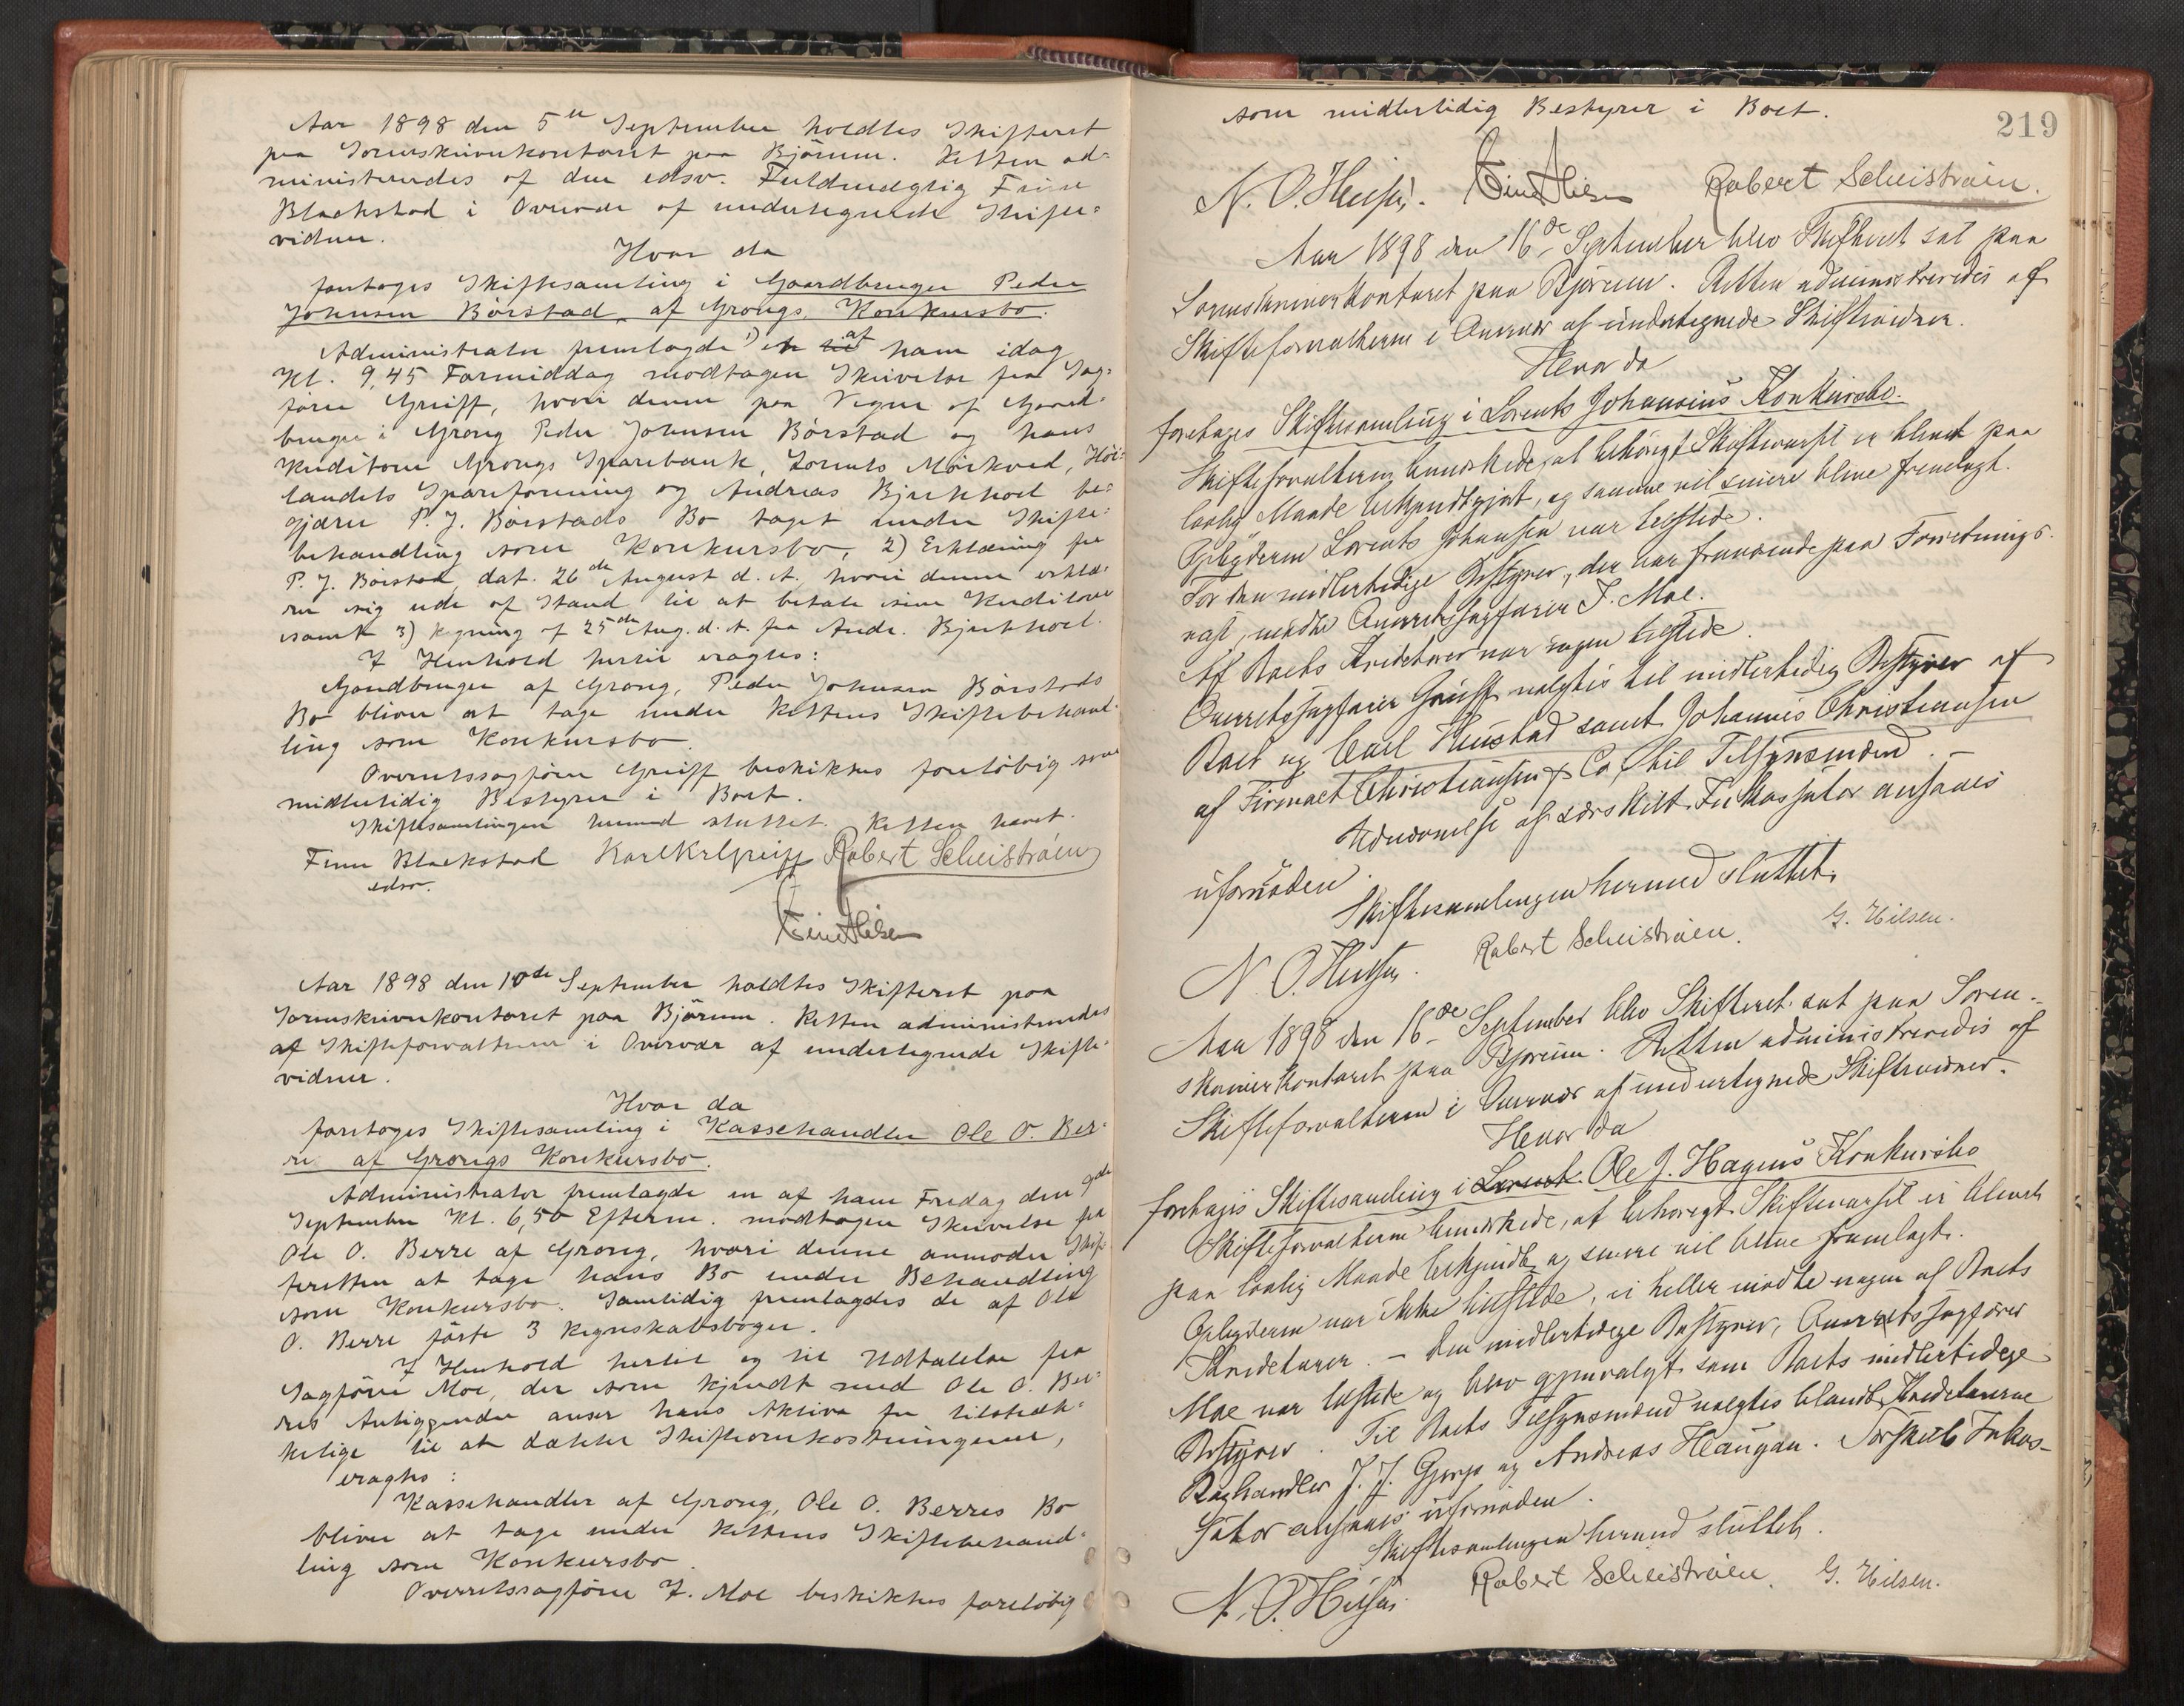 Aar 1898 den 5te September holdtes Skifteret
paa Sorenskriverkontoret paa Bjørum. Retten ad-
ministreredes af den edsv. Fuldmægtig Finn
Blackstad i Overvær af undertegnede Skifte-
vidner.
Hvor da
foretoges Skiftesamling i Gaardbruger Peder
Johnsen Börstad af Grongs Konkursbo.
Administrator fremlagde 1) en til af ham idag
Kl. 9,45 Formiddag modtagen Skrivelse fra Sag-
förer Greiff, hvori denne paa Vegne af Gaard-
bruger i Grong Peder Johnsen Börstad og hans
Kreditorer Grongs Sparebank, Lorents Mörkved, Höi-
landets Spareforening og Andreas Bjerkhoel be-
gjærer P. J. Börstads Bo taget under Skifte-
behandling som Konkursbo, 2) Erklæring fra
P. J. Börstad, dat. 26de August d. A. hvori denne erklæ-
rer sig ude af Stand til at betale sine Kreditorer
samt 3) Regning af 25de Aug. d. A. fra Andr. Bjerkhoel.
I Henhold hertil eragtes:
Gaardbruger af Grong, Peder Johnsen Börstads
Bo bliver at tage under Rettens Skiftebehand-
ling som Konkursbo.
Overretssagförer Greiff beskikkes foreløbig som
midlertidig Bestyrer i Boet.
Skiftesamlingen hermed sluttet. Retten hævet.
Finn Blackstad Karl Kr Greiff Robert Scheiströen
edsv.
Aar 1898 den 10de September holdtes Skifteret paa
Sorenskriverkontoret paa Bjørum. Retten administreredes
af Skifteforvalteren i Overvær af undertegnede Skifte-
vidner.
Hvor da
foretoges Skiftesamling i Kassehandler Ole O. Ber-
re af Grongs Konkursbo.
Administrator fremlagde en af ham Fredag den 9de
September Kl. 6,50 Efterm. modtagen Skrivelse fra
Ole O. Berre af Grong, hvori denne anmoder Skif-
teretten at tage hans Bo under Behandling
som Konkursbo. Samtidig fremlagdes de af Ole
O. Berre förte 3 Regnskabsböger.
I Henhold hertil og til Udtalelse fra
Sagförer Moe, der som kjendt med Ole O. Ber-
res Anliggender anser hans Aktiva for tilstræk-
kelige til at dække Skifteomkostningerne,
eragtes:
Kassehandler af Grong, Ole O. Berres Bo
bliver at tage under Rettens Skiftebehand-
ling som Konkursbo.
Overretssagförer I. Moe beskikkes foreløbig
219
som midlertidig Bestyrer i Boet.
N. O. Robert Scheiströen.
Aar 1898 den 16de September blev Skifteret sat paa
Sorenskriverkontoret paa Bjørum. Retten administreredes af
Skifteforvalteren i Overvær af undertegnede Skiftevidner.
Hvor da
foretages Skiftesamling i Lorents Johansens Konkursbo.
Skifteforvalteren bemærkede, at behörigt Skiftevarsel er blevet paa
lovlig Maade bekjendtgjort, og samme vil senere blive fremlagt.
Opbyderen Lorents Johansen var tilstede.
For den midlertidige Bestyrer, der var fraværende paa Forretnings-
rejse, mødte Overretssagfører I. Moe.
Af Boets Kreditorer var ingen tilstede.
Overretssagfører Greiff valgtes til midlertidig Bestyrer af
Boet og Carl samt Johannes Christiansen
af Firmaet Christiansen & Co, til Tilsynsmænd. –
Udnævnelse af særskilt Inkassator ansaaes
ufornøden.
Skiftesamlingen hermed sluttet.
N. O. Robert Scheiströen. G. Hilsen.
Aar 1898 den 16de September blev Skifteret sat paa Soren-
skriverkontoret paa Bjørum. Retten administreredes af
Skifteforvalteren i Overvær af undertegnede Skiftevidner.
Hvor da
foretages Skiftesamling i Lorents Ole J. Hagens Konkursbo
Skifteforvalteren bemærkede, at behørigt Skiftevarsel er blevet
paa lovlig Maade bekjendt og senere vil blive fremlagt.
Opbyderen var ikke tilstede, ei heller mødte nogen af Boets
Kreditorer. – Den midlertidige Bestyrer, Overretssagfører
Moe var tilstede og blev gjenvalgt som Boets midlertidige
Bestyrer. Til Boets Tilsynsmænd valgtes blandt Kreditorerne
J. J. og Andreas Haugan. Særskilt Inkas-
sator ansaaes ufornøden.
Skiftesamlingen hermed sluttet.
N. O. Robert Scheiströen. G. Hilsen.